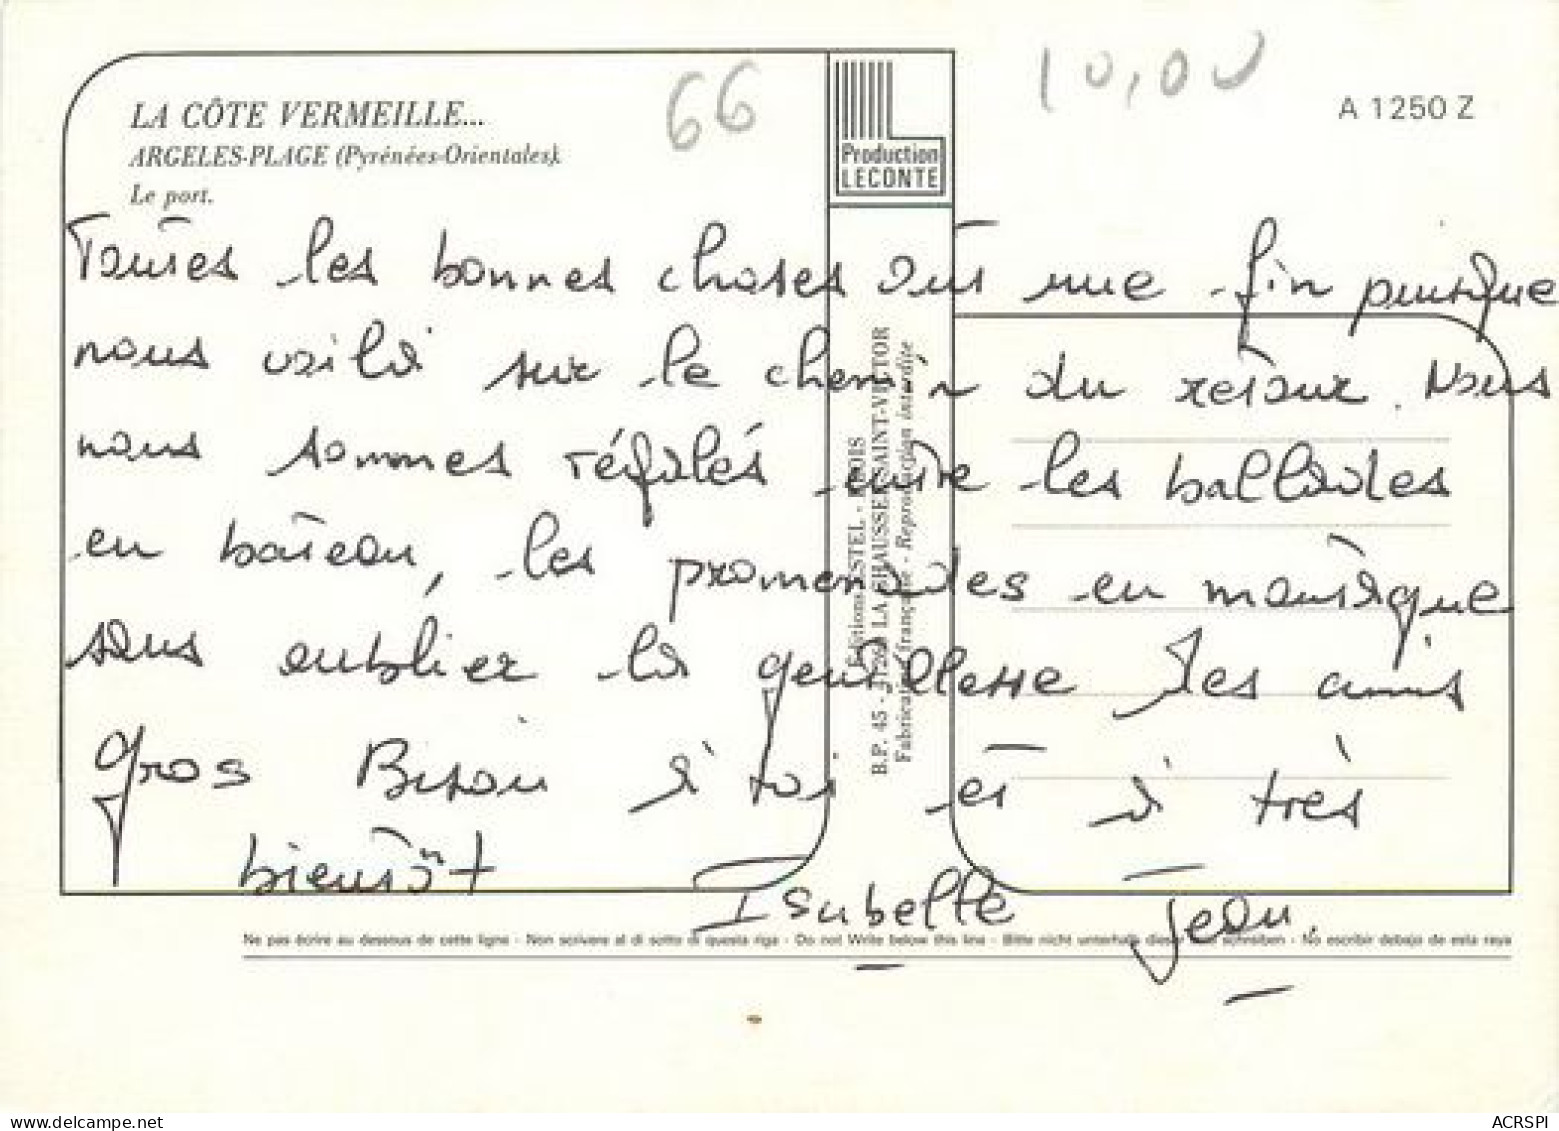 66
10,00
A 1250 Z
LA CÔTE VERMEILLE...
ARGELES-PLAGE (Pyrénées-Orientales).
Le port.
Production
LECONTE
Toutes les bonnes choses ont une fin puisque
nous voilà sur le chemin du retour. Nous
nous sommes régalés entre les ballades
en bateau, les promenades en montagne
sans oublier la gentillesse des amis
gros Bisou à toi et à très
bientôt
Isabelle Jean.
Editions ESTEL - BLOIS
B.P. 45 - LA CHAUSSEE-SAINT-VICTOR
Fabrication française - Reproduction interdite
Ne pas écrire au dessous de cette ligne - Non scrivere al di sotto di questa riga - Do not Write below this line - Bitte nicht unterhalb dieser schreiben - No escribir debajo de esta raya
ACRSPI